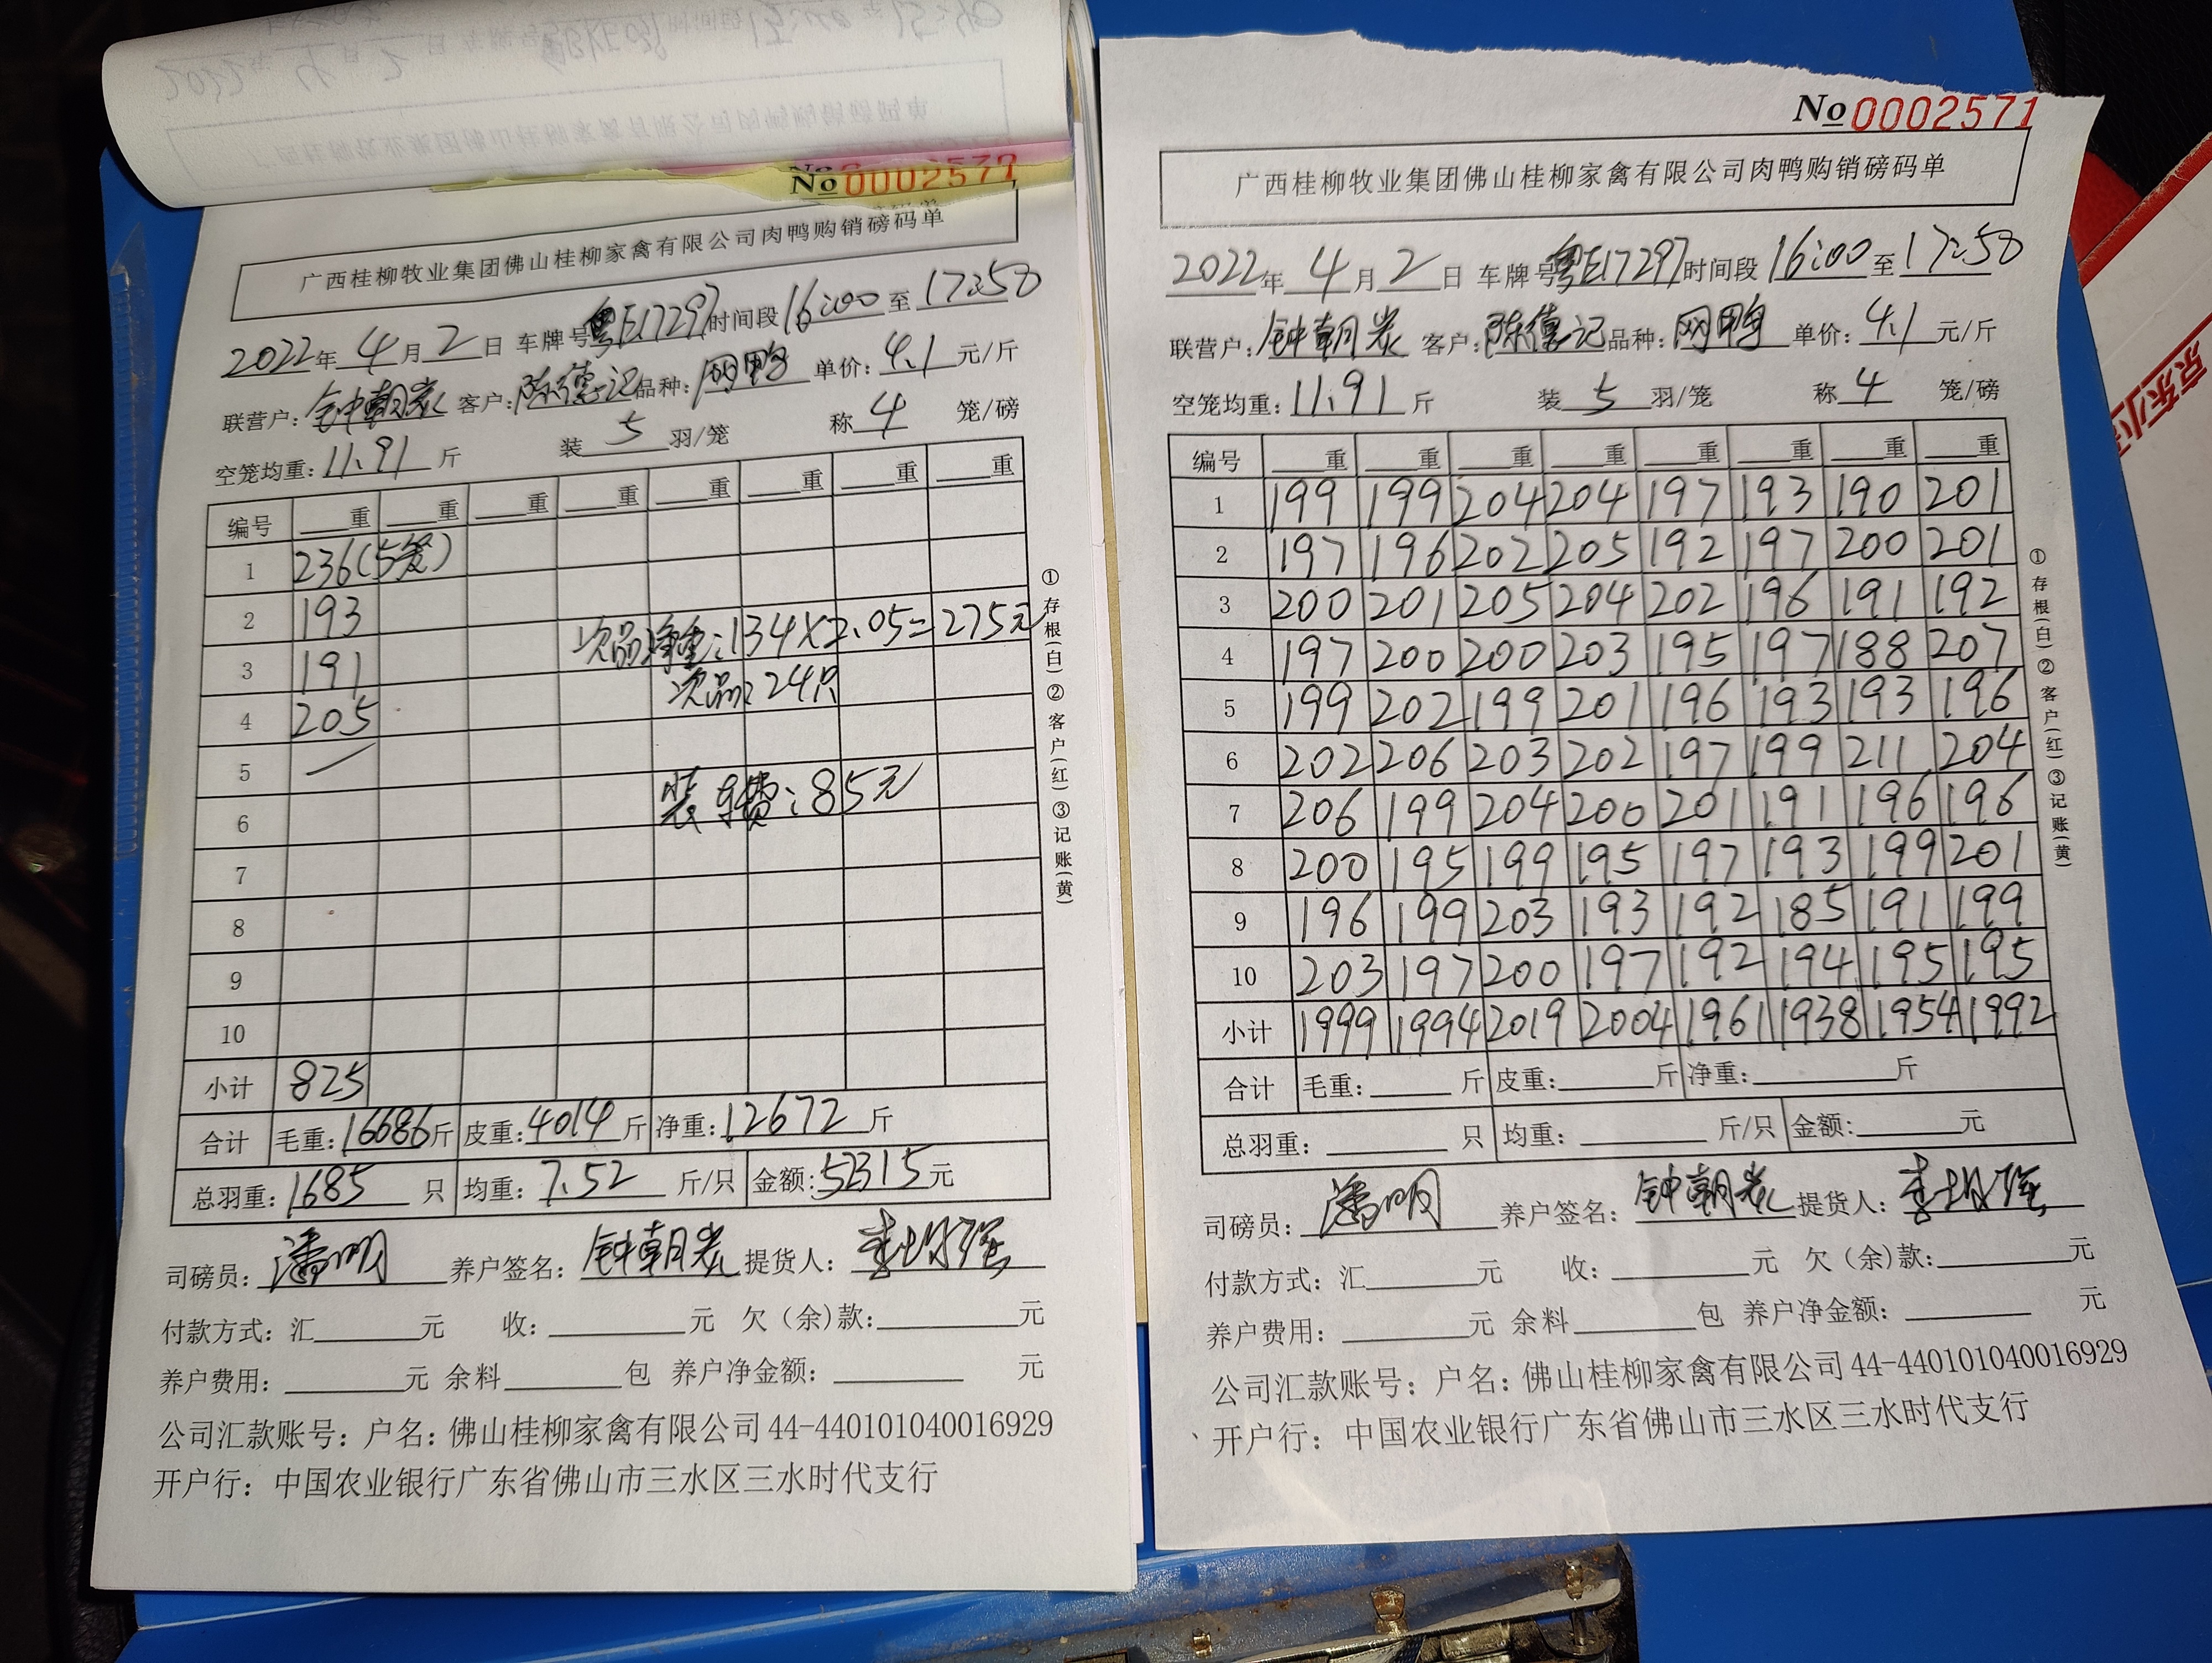 No 0002571
广西桂柳牧业集团佛山桂柳家禽有限公司肉鸭购销磅码单
2022年 4月 2日 车牌号粤E17297时间段16:00至17:50
联营户:钟朝炭 客户:陈德记 品种:网鸭 单价:4.1元/斤
空笼均重:11.91斤 装5羽/笼 称4笼/磅
编号 重 重 重 重 重 重 重 重
1 236(5笼)
2 193
次品净重:134×2.05=275元
3 191
次品:24只
4 205
5
装车费:85元
6
7
8
9
10
小计 825
合计 毛重:16686斤 皮重:4014斤 净重:12672斤
总羽重:1685只 均重:7.52斤/只 金额:52315元
司磅员:潘明 养户签名:钟朝炭 提货人:
付款方式:汇 元 收: 元 欠(余)款: 元
养户费用: 元 余料 包 养户净金额: 元
公司汇款账号:户名:佛山桂柳家禽有限公司44-440101040016929
开户行:中国农业银行广东省佛山市三水区三水时代支行
①存根(白)②客户(红)③记账(黄)
No 0002571
广西桂柳牧业集团佛山桂柳家禽有限公司肉鸭购销磅码单
2022年 4月 2日 车牌号粤E17297时间段16:00至17:50
联营户:钟朝炭 客户:陈德记 品种:网鸭 单价:4.1元/斤
空笼均重:11.91斤 装5羽/笼 称4笼/磅
编号 重 重 重 重 重 重 重 重
1 199 199 204 204 197 193 190 201
2 197 196 202 205 192 197 200 201
3 200 201 205 204 202 196 191 192
4 197 200 200 203 195 197 188 207
5 199 202 199 201 196 193 193 196
6 202 206 203 202 197 199 211 204
7 206 199 204 200 201 191 196 196
8 200 195 199 195 197 193 199 201
9 196 199 203 193 192 185 191 199
10 203 197 200 197 192 194 195 195
小计 1999 1994 2019 2004 1961 1938 1954 1992
合计 毛重: 斤 皮重: 斤 净重: 斤
总羽重: 只 均重: 斤/只 金额: 元
司磅员:潘明 养户签名:钟朝炭 提货人:
付款方式:汇 元 收: 元 欠(余)款: 元
养户费用: 元 余料 包 养户净金额: 元
公司汇款账号:户名:佛山桂柳家禽有限公司44-440101040016929
开户行:中国农业银行广东省佛山市三水区三水时代支行
①存根(白)②客户(红)③记账(黄)
京东小